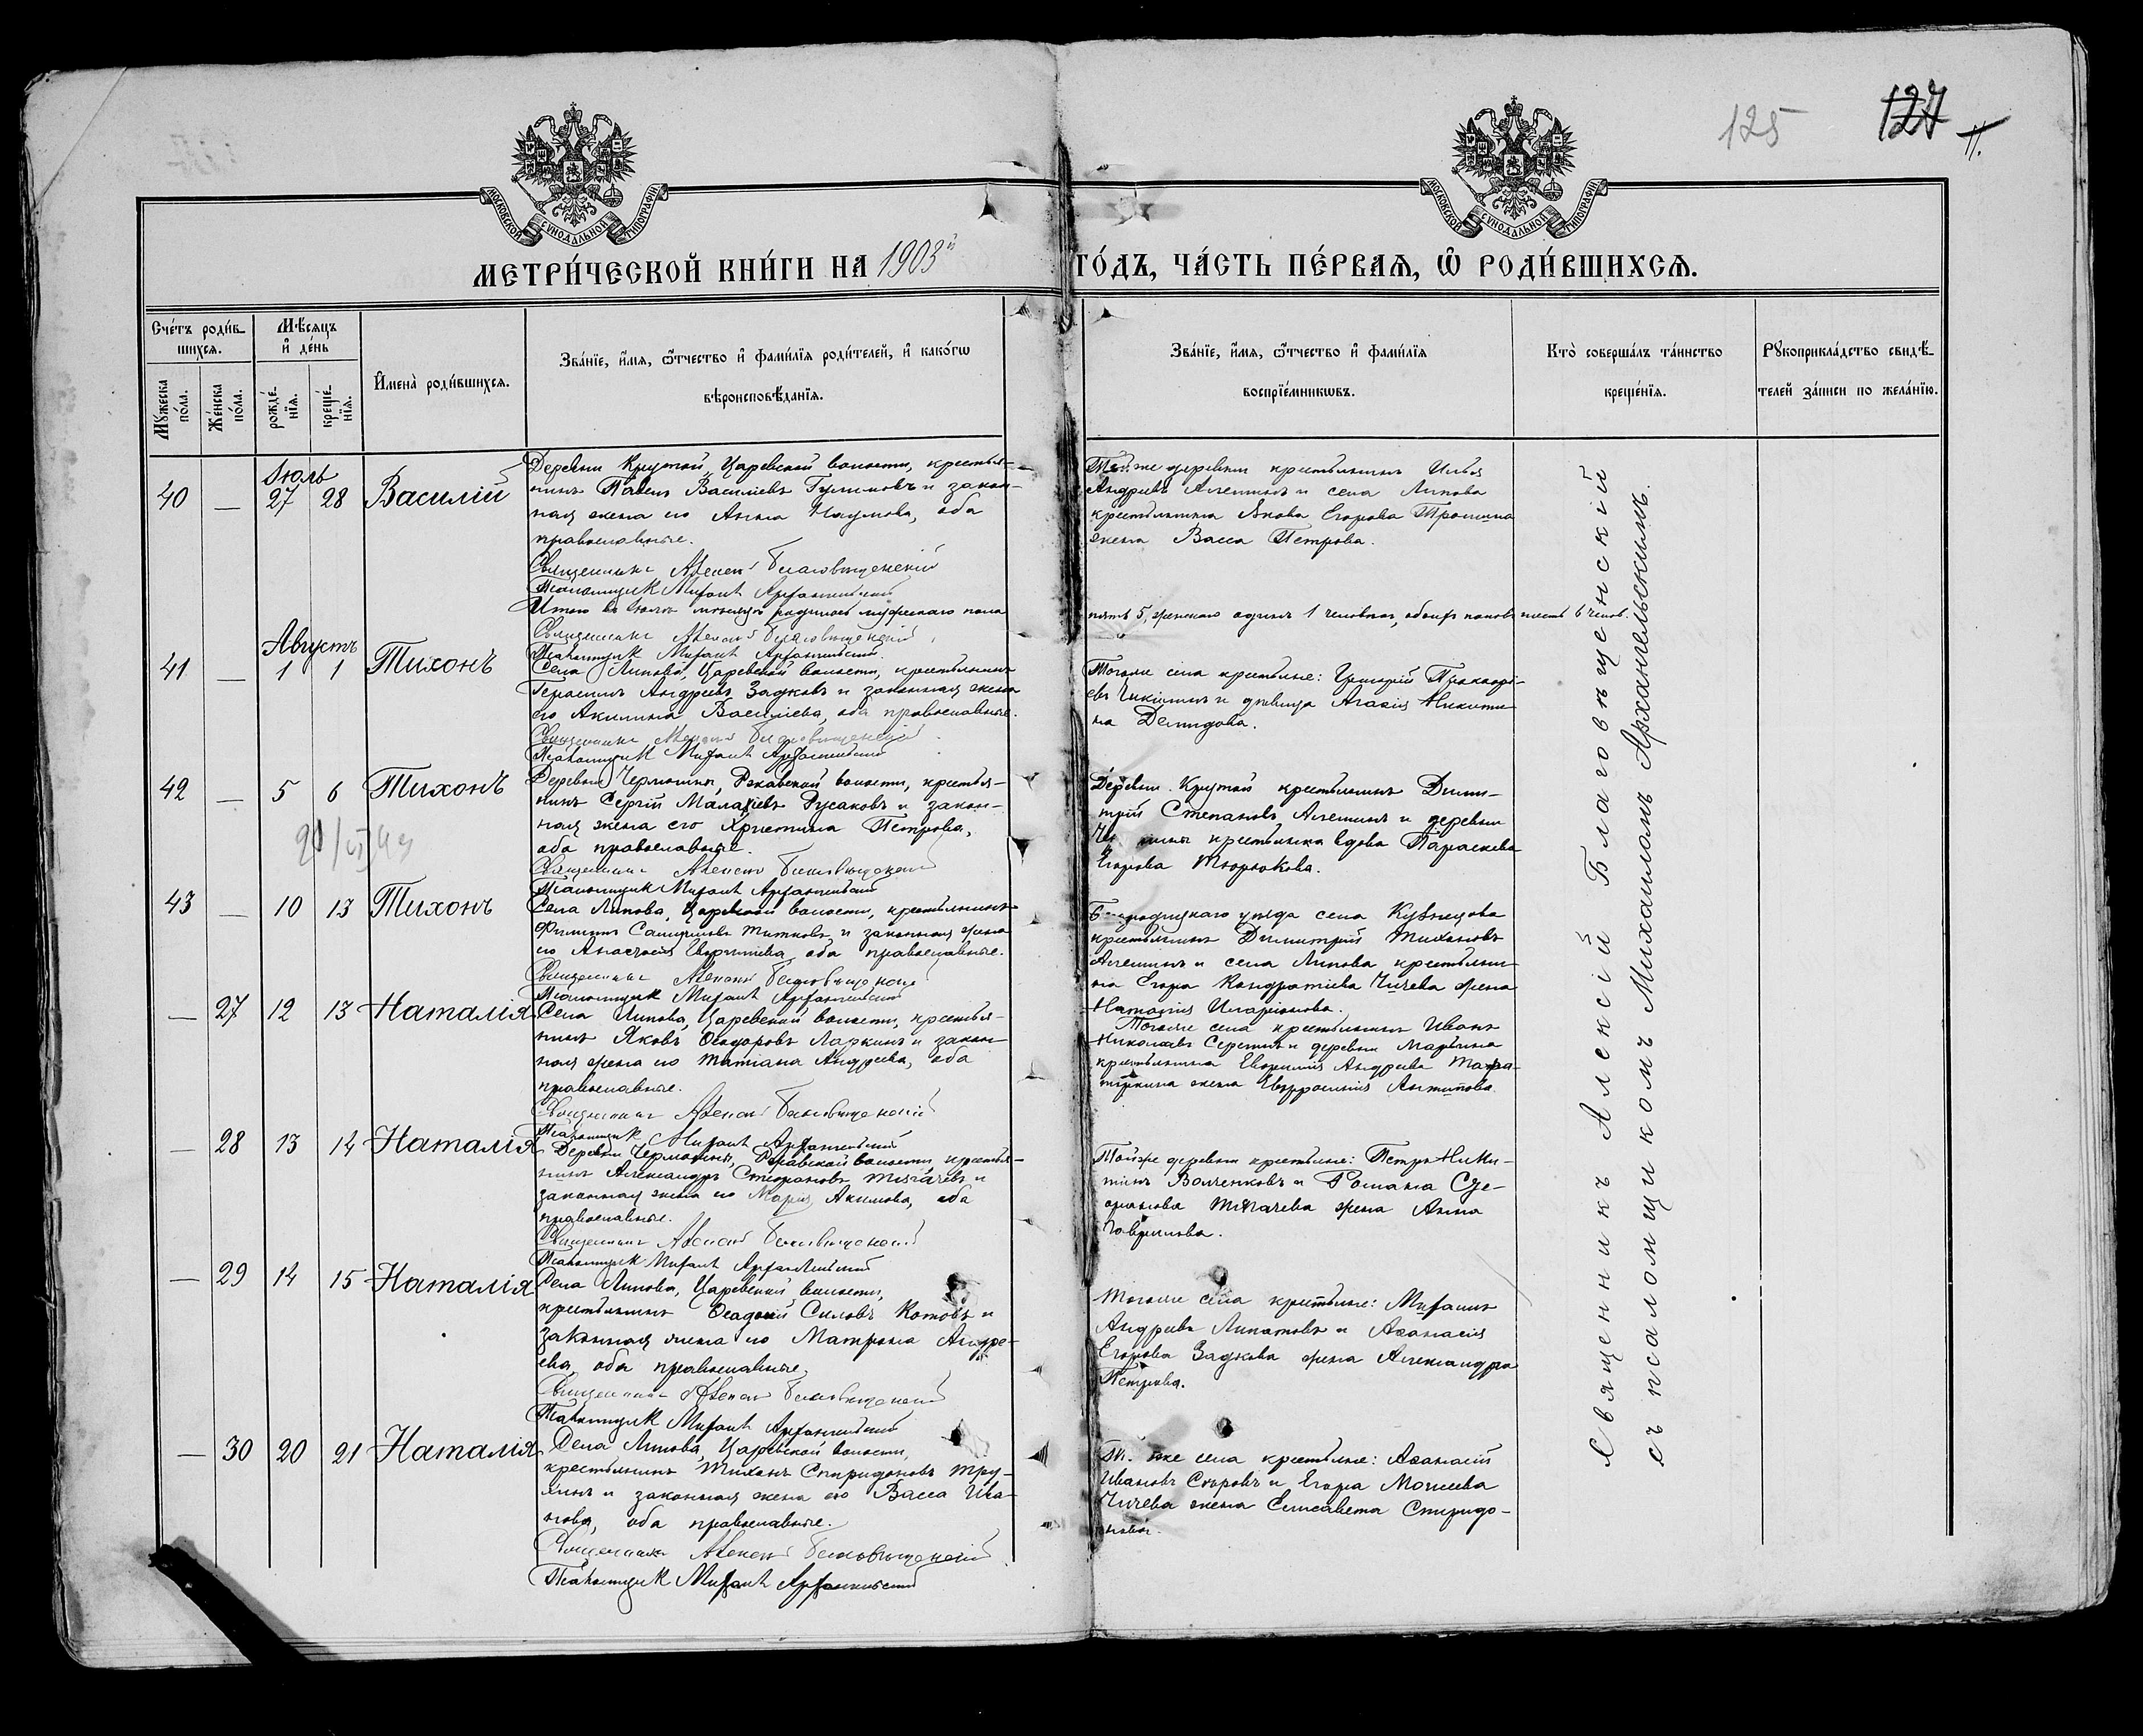 125
127
МОСКОВСКОЙ СѴНОДАЛЬНОЙ ТИПОГРАФІИ
МОСКОВСКОЙ СѴНОДАЛЬНОЙ ТИПОГРАФІИ
МЕТРИ́ЧЕСКОЙ КНИ́ГИ НА 1903й ГО́ДЪ, ЧА́СТЬ ПЕ́РВАѦ, Ѡ҆ РОДИ́ВШИХСѦ.
Сче́тъ роди́в-
шихсѧ.
Мꙋ́жеска
по́ла.
Же́нска
по́ла.
Мѣ́сѧцъ
и҆ де́нь
рожде́-
нїѧ.
креще́-
нїѧ.
И҆мена̀ роди́вшихсѧ.
Зва́нїе, и҆́мѧ, ѻ҆́тчество и҆ фами́лїѧ роди́телей, и҆ како́гѡ
вѣроисповѣ́данїѧ.
Зва́нїе, и҆́мѧ, ѻ҆́тчество и҆ фами́лїѧ
воспрїе́мникѡвъ.
Кто̀ соверша́лъ та́инство
креще́нїѧ.
Рꙋкоприкла́дство свидѣ́-
телей за́писи по жела́нїю.
Іюль
40 — 27 28 Василій
Деревни Крутой, Царевской волости, крестья-
нинъ Павелъ Василіевъ и закон-
ная жена его Анна Наумова, оба
православные.
Священникъ Алексій Благовѣщенскій
Псаломщикъ Михаилъ Архангельскій
Той же деревни крестьянинъ Илья
Андреевъ Алешинъ и села Липова
крестьянина Якова Егорова Трошина
жена Васса Петрова.
Итого въ Іюлѣ мѣсяцѣ родилось мужескаго пола пять 5, женскаго одинъ 1 человѣкъ, обоихъ половъ шесть 6 челов.
Священникъ Алексій Благовѣщенскій
Псаломщикъ Михаилъ Архангельскій
Августъ
41 — 1 1 Тихонъ
Села Липова, Царевской волости, крестьянинъ
Герасимъ Андреевъ Задковъ и законная жена
его Акилина Васильева, оба православные.
Священникъ Алексій Благовѣщенскій
Псаломщикъ Михаилъ Архангельскій
Тогоже села крестьяне: Григорій
и дѣвица Агаѳія Никити-
на Демидова.
42 — 5 6 Тихонъ
Деревни Чермошны, волости, крестья-
нинъ Сергій Малахіевъ Русаковъ и закон-
ная жена его Христина Петрова,
оба православные.
Священникъ Алексій Благовѣщенскій
Псаломщикъ Михаилъ Архангельскій
Деревни Крутой крестьянинъ Дими-
трій Степановъ Алешинъ и деревни
крестьянка вдова Параскева
Егорова Тюрюкова.
43 — 10 13 Тихонъ
Села Липова, Царевской волости, крестьянинъ
Филиппъ Титковъ и законная жена
его Анастасія оба православные.
Священникъ Алексій Благовѣщенскій
Псаломщикъ Михаилъ Архангельскій
уѣзда села Кузнецова
крестьянинъ Димитрій Тихоновъ
Алешинъ и села Липова крестьяни-
на Егора Кондратіева Чичева жена
Наталія Иларіонова.
— 27 12 13 Наталія
Села Липова, Царевской волости, крестья-
нинъ Яковъ Ѳеодоровъ Ларкинъ и закон-
ная жена его Татіана Андреева, оба
православные.
Священникъ Алексій Благовѣщенскій
Псаломщикъ Михаилъ Архангельскій
Тогоже села крестьянинъ Иванъ
Николаевъ и деревни
крестьянина Андреева
жена Евфросинія Антипова.
— 28 13 14 Наталія
Деревни Чермошны, волости, крестья-
нинъ Александръ Стефановъ Ткачевъ и
законная жена его Марія Акимова, оба
православные.
Священникъ Алексій Благовѣщенскій
Псаломщикъ Михаилъ Архангельскій
Тойже деревни крестьяне: Петръ Ники-
тинъ Волченковъ и Романа Сте-
фанова Ткачева жена Анна
Гаврилова.
— 29 14 15 Наталія
Села Липова, Царевской волости,
крестьянинъ Силовъ Котовъ и
законная жена его Матрона Андре-
ева, оба православные.
Священникъ Алексій Благовѣщенскій
Псаломщикъ Михаилъ Архангельскій
Тогоже села крестьяне: Михаилъ
Андреевъ Липатовъ и Аѳанасія
Егорова Задкова жена Александра
Петрова.
— 30 20 21 Наталія
Села Липова, Царевской волости,
крестьянинъ Тихонъ Спиридоновъ
и законная жена его Васса Ива-
нова, оба православные.
Священникъ Алексій Благовѣщенскій
Псаломщикъ Михаилъ Архангельскій
же села крестьяне: Аѳанасій
Ивановъ и Егора Моисеева
Чичева жена Елисавета Спиридо-
нова.
Священникъ Алексій Благовѣщенскій
съ псаломщикомъ Михаиломъ Архангельскимъ.